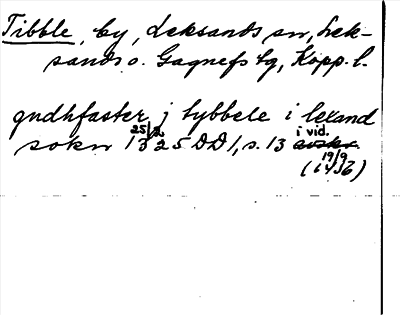 Tibble, by, Leksands sn, Lek-
sands o. Gagnefs tg, Kopp. l.
gudhfaster j tybbele i lexand
sokn 25/2 1325 DD 1, s. 13 i vid.
19/9
(1436)